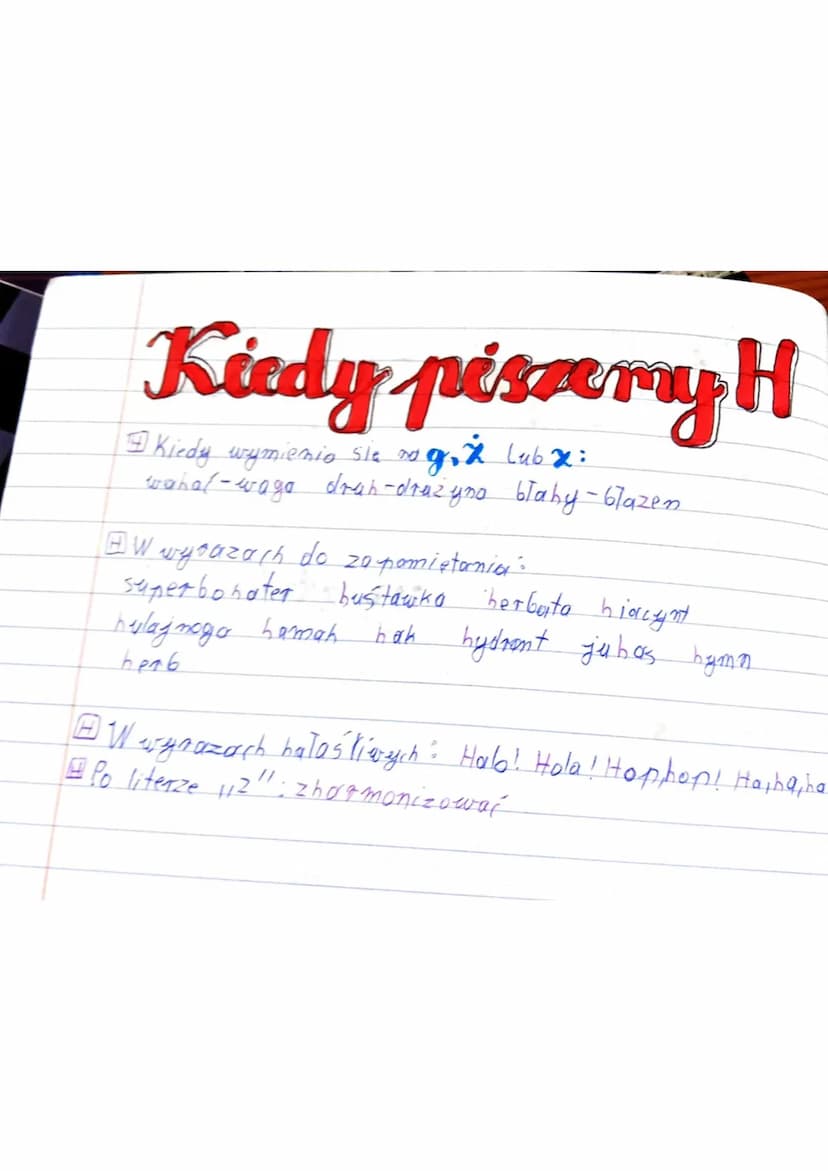 Kiedy piszemy H
H Kiedy wymienia się na g, ż lub z:
wahać-waga druh-drużyna błahy-błazen
H W wyrazach do zapamiętania:
superbohater huśtawka herbata hiacynt
hulajnoga hamak hak hydrant juhas hymn
herb
H W wyrazach hałaśliwych: Halo! Hola! Hophop! Ha,ha,ha
H Po literze „z": zharmonizować